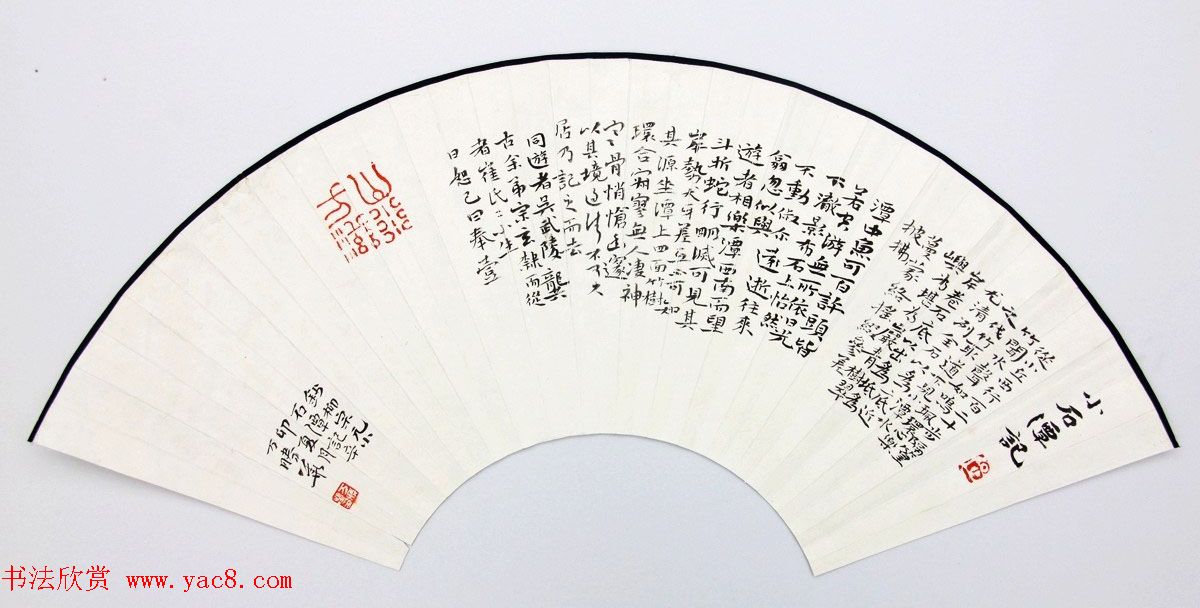 小石潭記
從小丘西行百二十步隔篁
竹聞水聲如鳴珮環心樂
之伐竹取道下見小潭水
尤清冽全石以為底近
岸卷石底以出為坻為
嶼為堪為巖青樹翠
蔓蒙絡搖綴參差
披拂
潭中魚可百許頭皆
若空游無所依日光
下澈影布石上怡然
不動俶尔遠逝往來
翕忽似與
遊者相樂潭西南而望
斗折蛇行明滅可見其
岸勢犬牙差互不可知
其源坐潭上四面竹樹
環合寂寥無人淒神
寒骨悄愴幽邃
以其境過清不可久
居乃記之而去
同遊者吳武陵龔
古余弟宗玄隸而從
者崔氏二小生
曰恕己曰奉壹
鈔柳宗元小
石潭記辛
卯夏月
书法欣赏 www.yac8.com